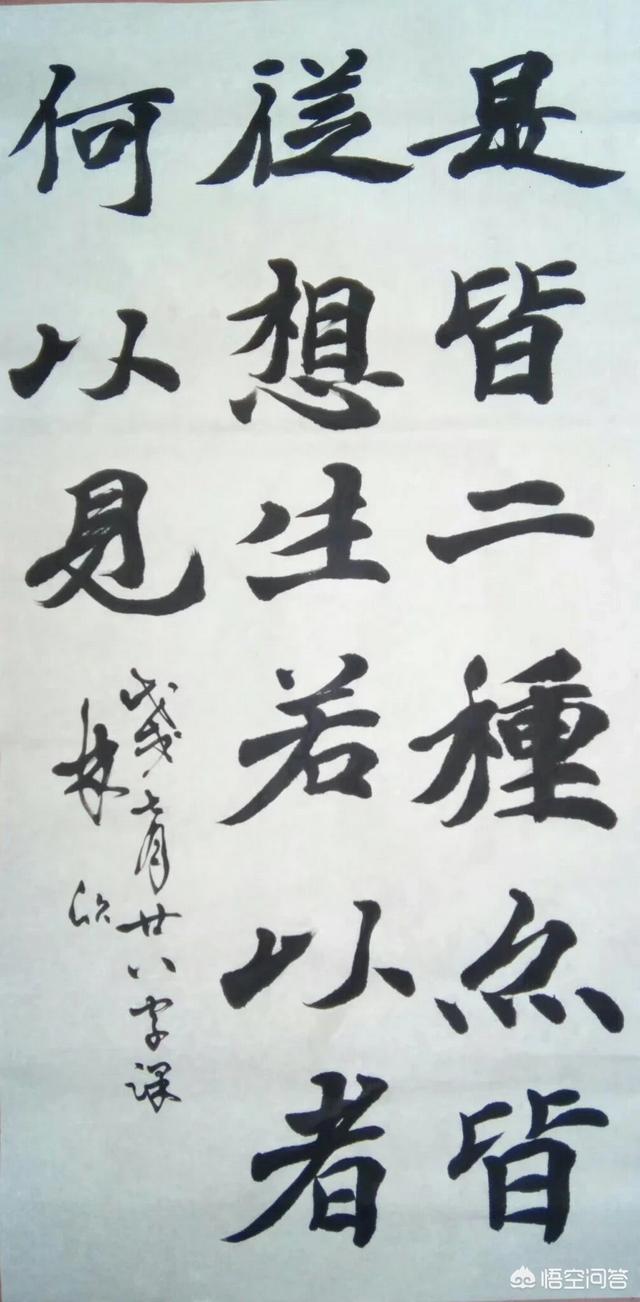 是皆二種亦皆
從想生若以者
何以見
戊戌七月廿八字课
林
悟空问答